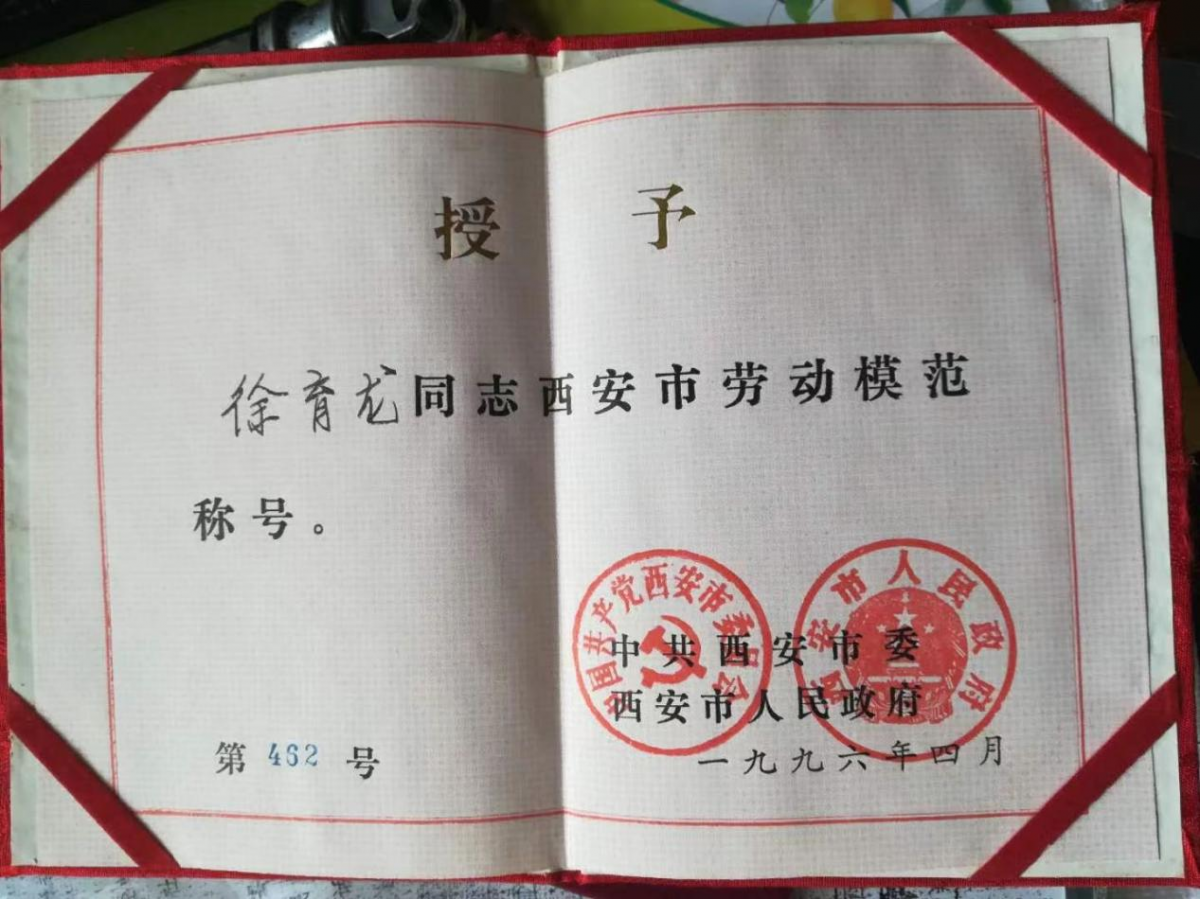 授 予
徐育龙同志西安市劳动模范
称号。
中国共产党西安市委员会
西安市人民政府
中共西安市委
西安市人民政府
第 462 号
一九九六年四月